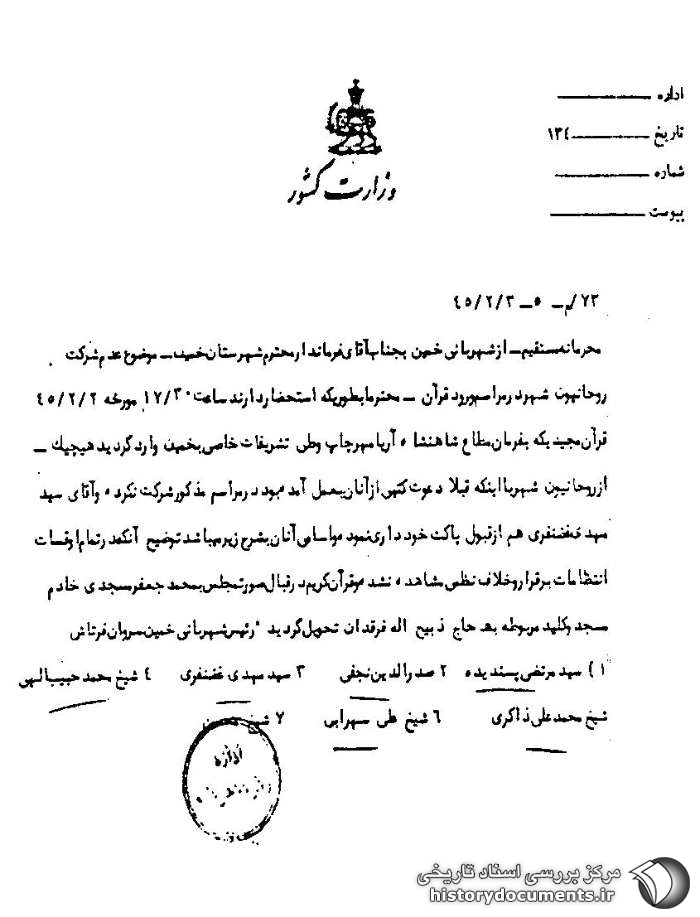 اداره
تاریخ ۱۳۴
شماره
پیوست
وزارت کشور
۷۳/م – ۵ – ۴۵/۲/۳
محرمانه مستقیم – از شهربانی خمین بجناب آقای فرماندار محترم شهرستان خمین – موضوع عدم شرکت
روحانیون شهر در مراسم ورود قرآن – محترما بطوریکه استحضار دارند ساعت ۱۷/۳۰ مورخه ۴۵/۲/۲
قرآن مجیدیکه بفرمان مطاع شاهنشاه آریامهر چاپ وطی تشریفات خاصی بخمین وارد گردید هیچیک –
از روحانیون شهر با اینکه قبلا دعوت کتبی از آنان بعمل آمده بود در مراسم مذکور شرکت نکرده وآقای سید
مهدی غضنفری هم از قبول پاکت خودداری نموده واسامی آنان بشرح زیر میباشد توضیح آنکه در تمام اوقات
انتظامات برقرار و خلاف نظمی مشاهده نشد وقرآن کریم در قبال صورتمجلس بمحمد جعفر مسجدی خادم
مسجد وکلید مربوطه به حاج ذبیح اله فرقدان تحویل گردید رئیس شهربانی خمین سروان فرتاش
۱) سید مرتضی پسندیده ۲ صدرالدین نجفی ۳ سید مهدی غضنفری ۴ شیخ محمد حبیب الهی
شیخ محمد علی ذاکری ۶ شیخ علی سهرابی ۷ شیخ
اداره
مرکز بررسی اسناد تاریخی
historydocuments.ir